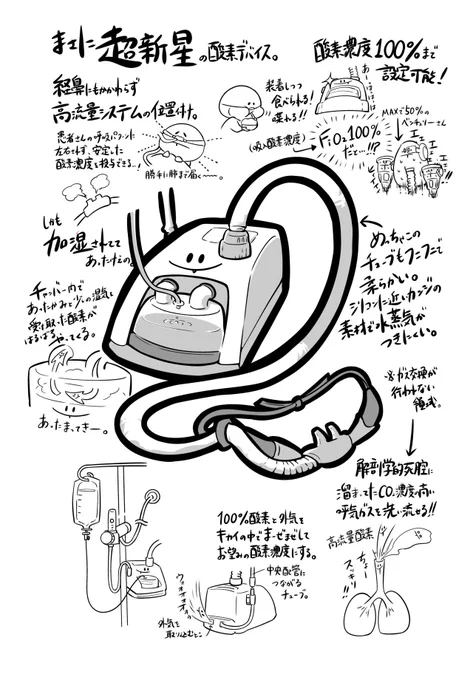 まさに超新星の酸素デバイス。
酸素濃度100%まで
設定可能!
経鼻にもかかわらず
高流量システムの位置付け。
患者さんの呼吸パターンに
左右されず、安定した
酸素濃度を投与できる…!
勝手に肺まで届く〜〜。
装着しつつ
食べられる!
喋れる!!
(吸入酸素濃度)
FiO₂100%
だと…!!?
MAXで50%の
ベンチュリーさん
しかも
加湿されてて
あったけぇの。
チャンバー内で
あったかみと少々の湿気を
受け取った酸素が
はるばるやってくる。
あったまってきー。
めっちゃこの
チューブもフニフニで
柔らかい。
シリコンに近いカンジの
素材で水蒸気が
つきにくい。
※ガス交換が
行われない
領域。
解剖学的死腔に
溜まってたCO₂濃度の高い
呼気ガスを洗い流せる!!
高流量酸素
ちょー
スッキリ!!
100%酸素と外気を
キカイの中でまーぜまぜして
お望みの酸素濃度にする。
中央配管に
つながる
チューブ。
外気を
取り込むとこ